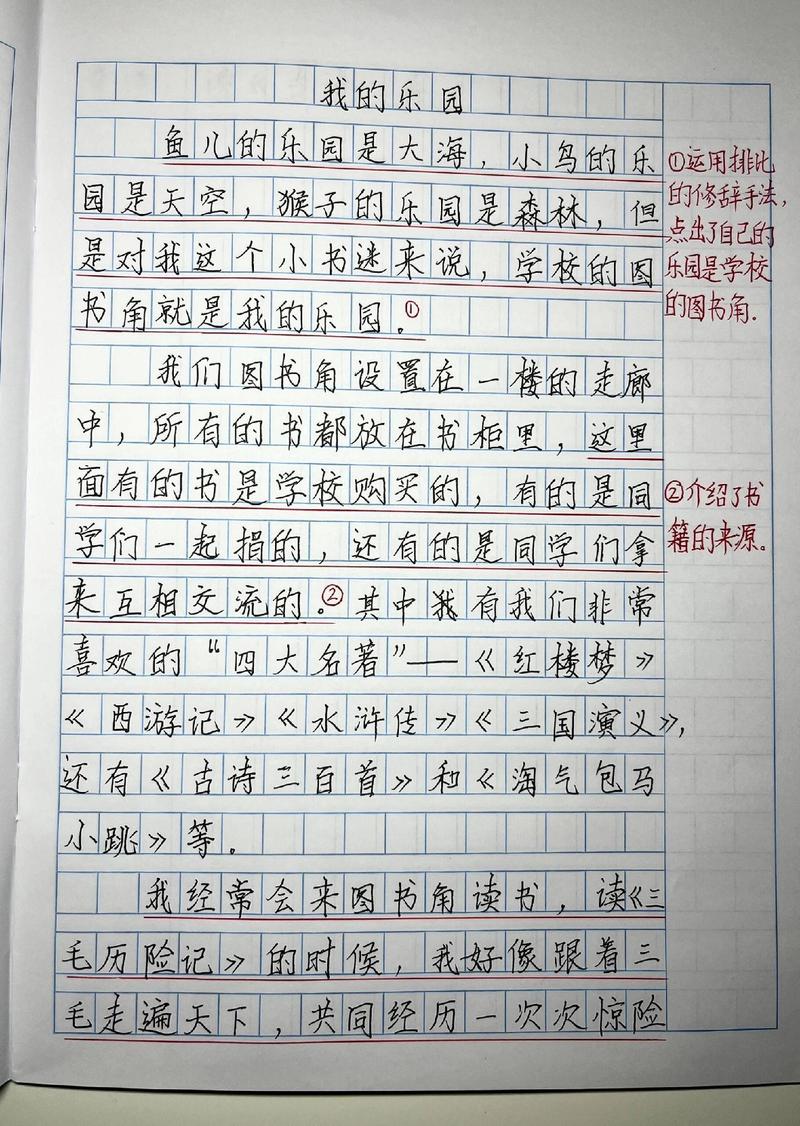 我的乐园
鱼儿的乐园是大海，小鸟的乐
园是天空，猴子的乐园是森林，但
是对我这个小书迷来说，学校的图
书角就是我的乐园。①
我们图书角设置在一楼的走廊
中，所有的书都放在书柜里，这里
面有的书是学校购买的，有的是同
学们一起捐的，还有的是同学们拿
来互相交流的。②其中我有我们非常
喜欢的“四大名著”——《红楼梦》
《西游记》《水浒传》《三国演义》，
还有《古诗三百首》和《淘气包马
小跳》等。
我经常会来图书角读书，读《三
毛历险记》的时候，我好像跟着三
毛走遍天下，共同经历一次次惊险
①运用排比
的修辞手法，
点出了自己的
乐园是学校
的图书角.
②介绍了书
籍的来源。